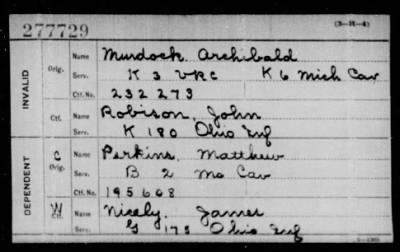 277729 (3-H-4)
INVALID
Orig. Name Murdock Archibald
Serv. K 3 VRC K 6 Mich Cav
Ctf. No. 232 273
Ctf. Name Robison, John
Serv. K 180 Ohio Inf
DEPENDENT
C Orig. Name Perkins, Matthew
Serv. B 2 Mo Cav
Ctf. No. 195668
W Ctf. Name Nicely, James
Serv. G 175 Ohio Inf